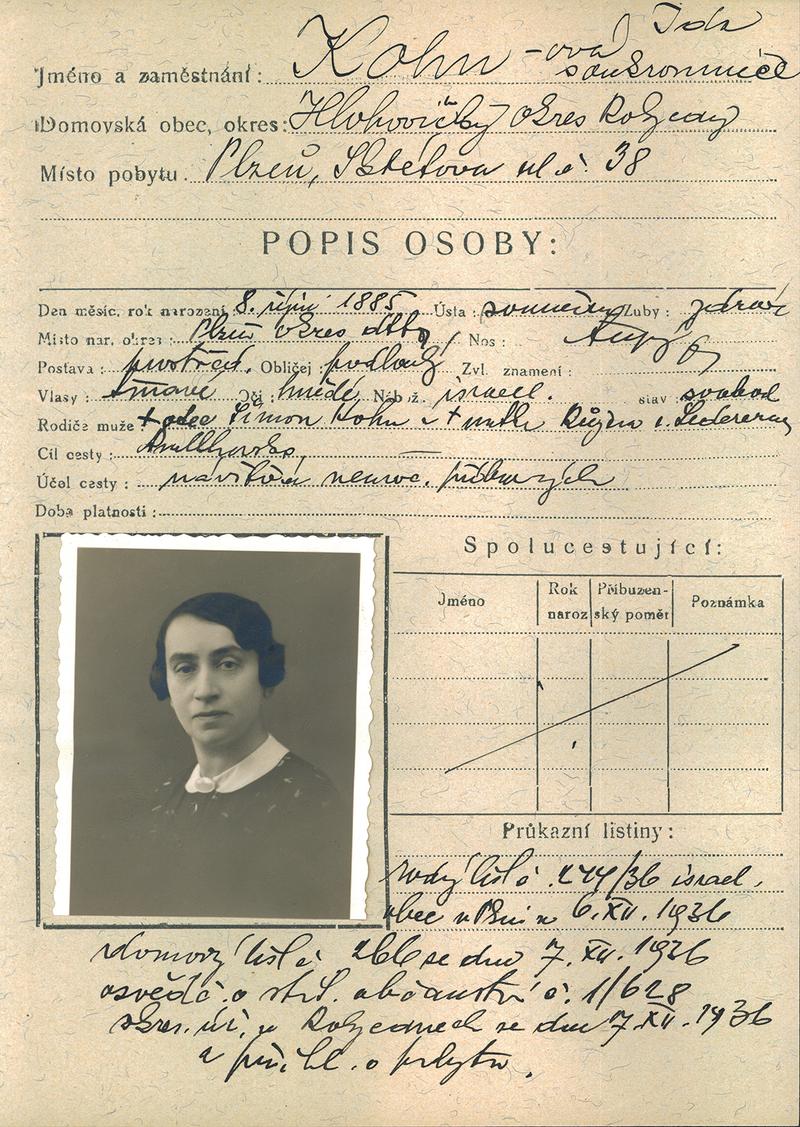 Ida
Jméno a zaměstnání: Kohn-ová soukromnice
Domovská obec, okres: Hlohovičky okres Rokycany
Místo pobytu. Plzeň, ul č. 38
POPIS OSOBY:
Den měsíc, rok narození 8. říjnu 1885 Ústa: souměrný Zuby: zdravé
Místo nar, okres: Plzeň okres dtto, Nos: tupý
Postava: prostřed. Obličej: podlouhý Zvl. znamení:
Vlasy: tmavé Oči: hnědé, Nábož. israel. stav svobod
Rodiče muže + otec Šimon Kohn a + matka Růžena r. Ledererový
Cíl cesty:
Účel cesty: návštěva nemoc. příbuzných
Doba platnosti:
Spolucestující:
Jméno Rok naroz Příbuzenský poměr Poznámka
Průkazní listiny:
rodný list č. 274/36 israel.
obec v Plzni z 6.XII.1936
domový list č. 266 ze dne 7.XII.1936
osvědč. o stát. občanství č. 1/628
okres. úř. v Rokycanech ze dne 7.XII.1936
a přihl. o pobytu.